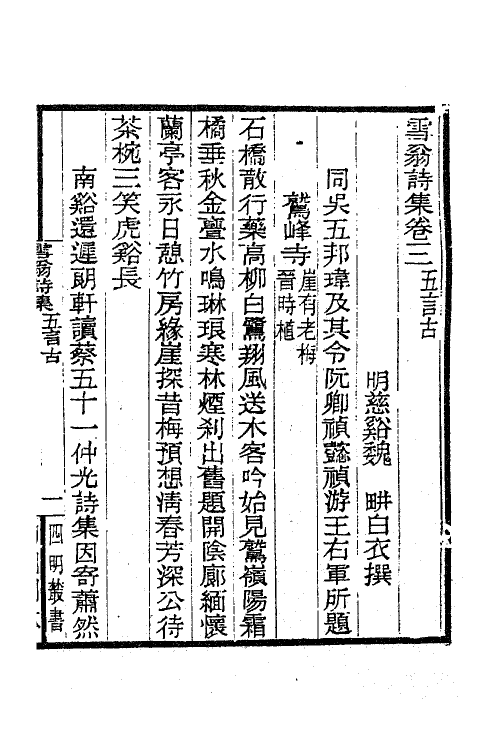 雪翁詩集卷三 五言古
明慈谿魏 畊白衣撰
同吳五邦瑋及其令阮卿禎懿禎游王右軍所題
鷲峰寺 崖有老梅晉時植
石橋散行藥高柳白鷺翔風送木客吟始見鷲嶺陽霜
橘垂秋金亹水鳴琳琅寒林煙刹出舊題開陰廊緬懷
蘭亭客永日憩竹房緣崖探昔梅預想清春芳深公待
茶椀三笑虎谿長
南谿還遲朗軒讀蔡五十一仲光詩集因寄蕭然
雪翁詩集 五言古
一 四明叢書